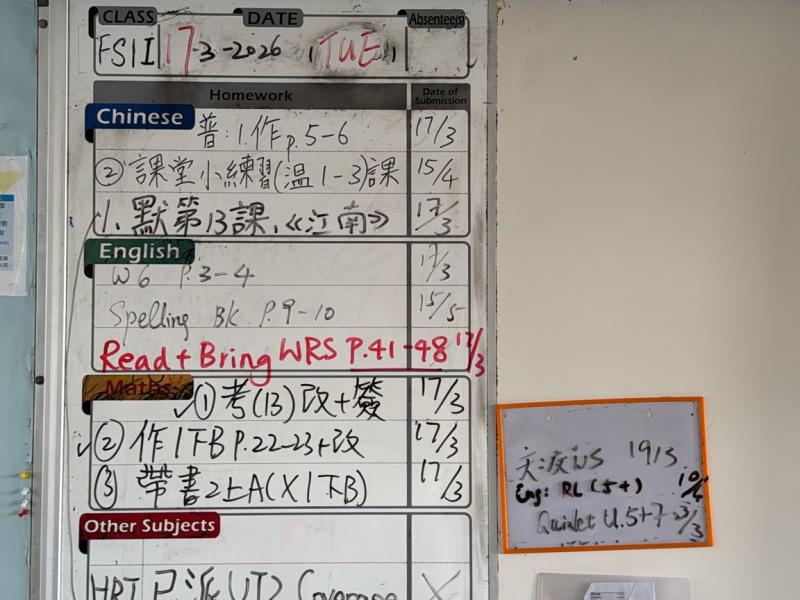 CLASS DATE Absentee/s
FS1I 17-3-2026 (TUE)
Homework Date of Submission
Chinese
普:1.作 p.5-6 17/3
② 課堂小練習(溫1-3)課 15/4
1. 默第13課,《江南》 17/3
English
W6 P.3-4 17/3
Spelling BK P.9-10 15/5
Read + Bring WRS P.41-48 17/3
Maths
✓① 考(13) 改+簽 17/3
✓② 作1下B P.22-23+改 17/3
③ 帶書2上A(X1下B) 17/3
Other Subjects
HRT 已派 UT2 Coverage X
WS 19/3
Eng: RL (5+)
Quizlet U.5+7